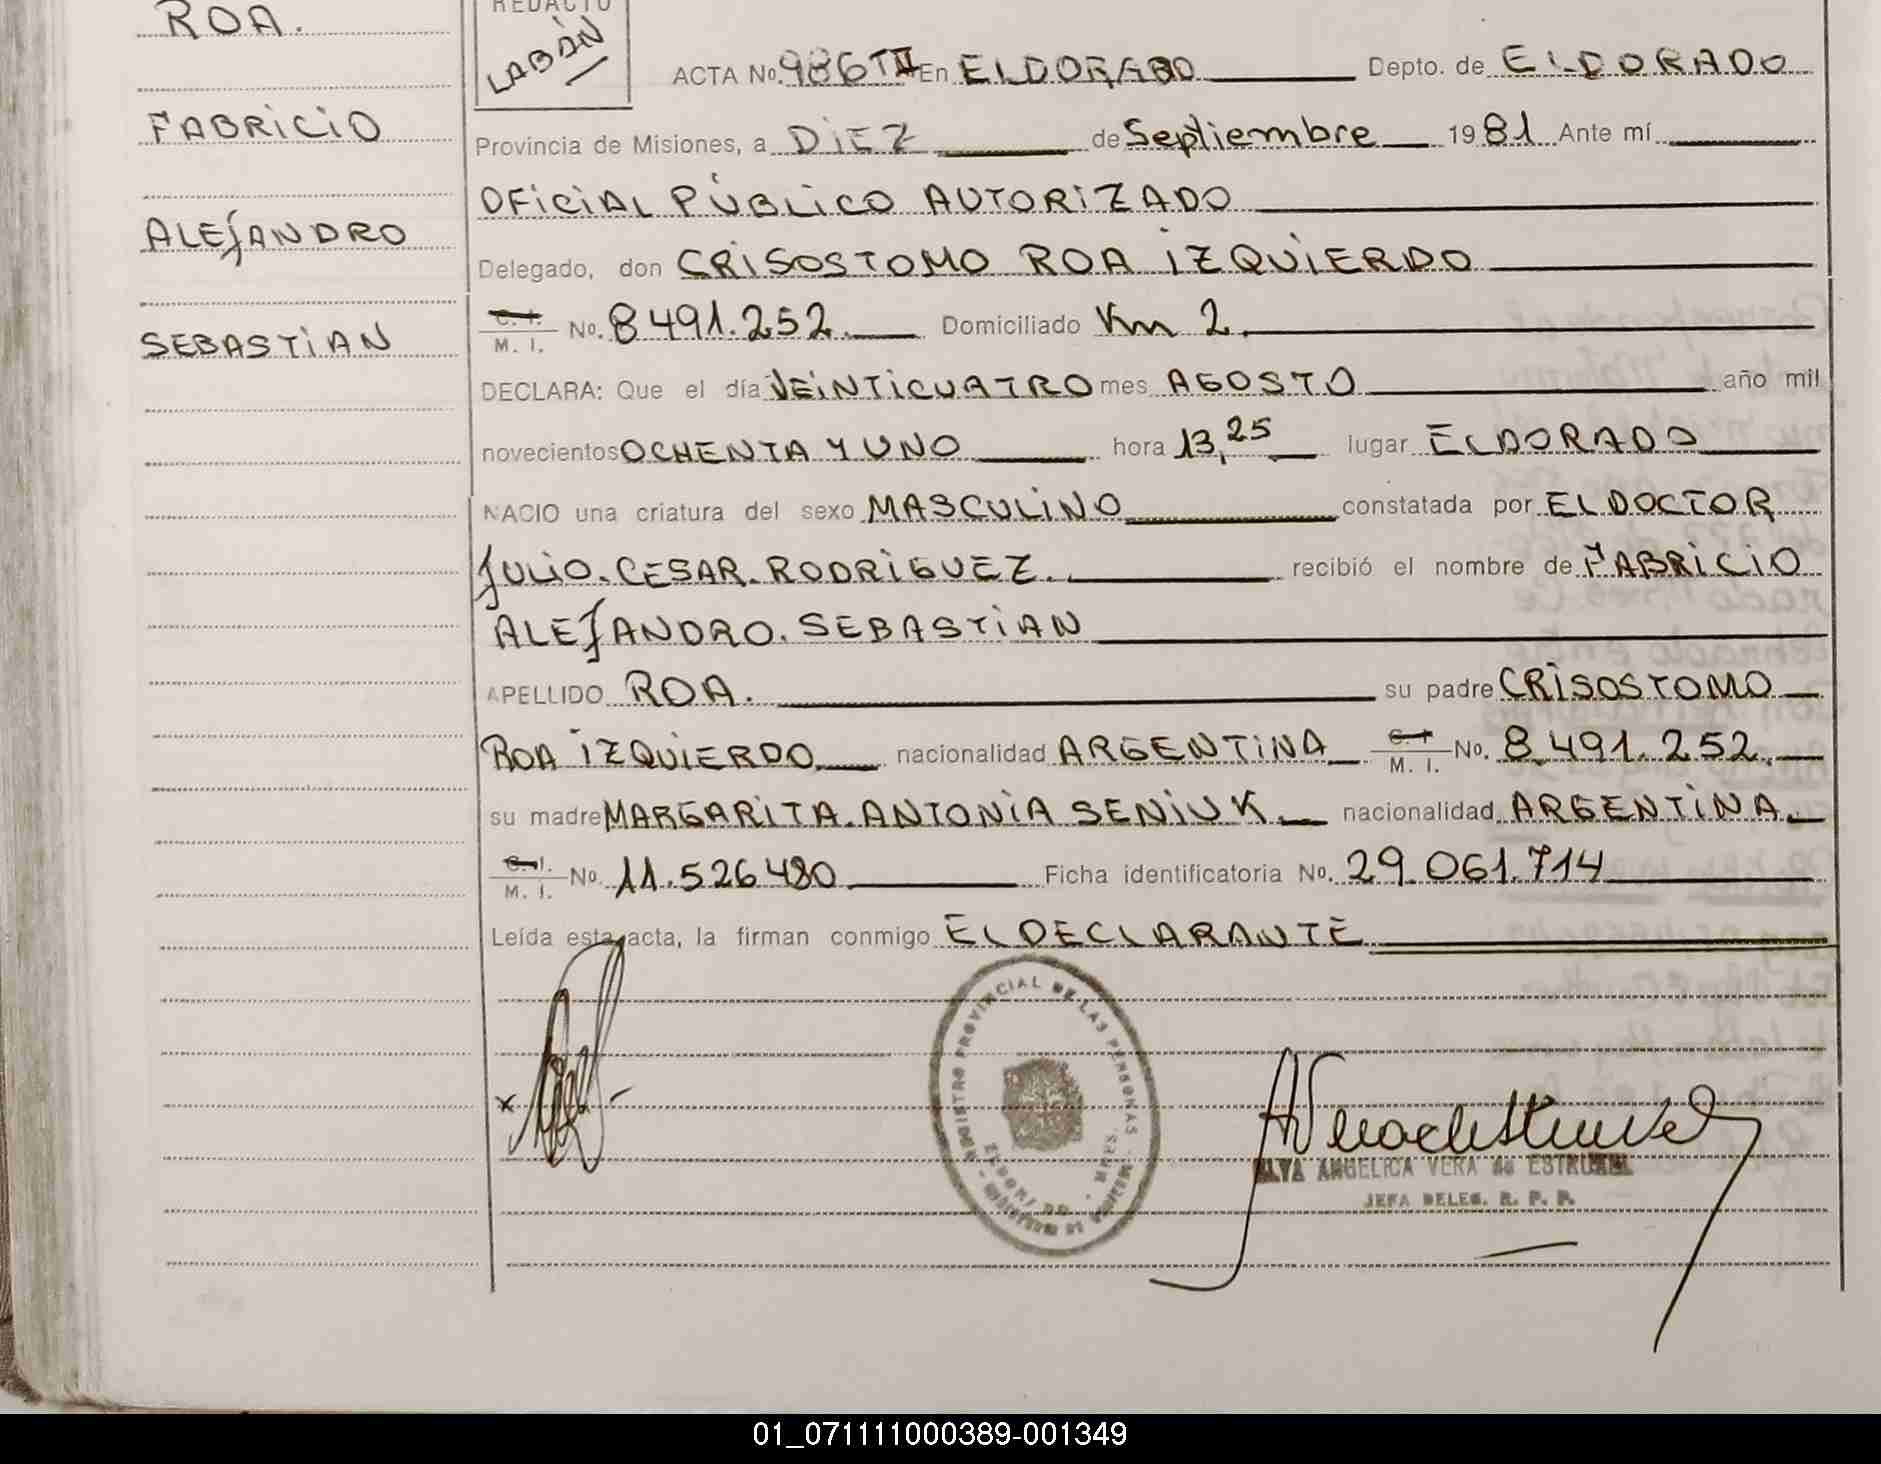 ROA.
FABRICIO
ALEJANDRO
SEBASTIAN
REDACTO
LABÁN
ACTA No. 986 T II En ELDORADO Depto. de ELDORADO
Provincia de Misiones, a DIEZ de Septiembre 1981 Ante mí
OFICIAL PÚBLICO AUTORIZADO
Delegado, don CRISOSTOMO ROA IZQUIERDO
C. I. M. I. No. 8491.252. Domiciliado Km 2.
DECLARA: Que el día VEINTICUATRO mes AGOSTO año mil
novecientos OCHENTA Y UNO hora 13,25 lugar ELDORADO
NACIO una criatura del sexo MASCULINO constatada por EL DOCTOR
JULIO. CESAR. RODRIGUEZ. recibió el nombre de FABRICIO
ALEJANDRO. SEBASTIAN
APELLIDO ROA. su padre CRISOSTOMO
ROA IZQUIERDO nacionalidad ARGENTINA C. I. M. I. No. 8.491.252.
su madre MARGARITA. ANTONIA SENIUK. nacionalidad ARGENTINA.
C. I. M. I. No. 11.526480 Ficha identificatoria No. 29.061.714
Leída esta acta, la firman conmigo EL DECLARANTE
PROVINCIAL DE LAS PERSONAS
ANGELICA VERA de ESTRUBEL
JEFA DELEG. R. P. P.
01_071111000389-001349